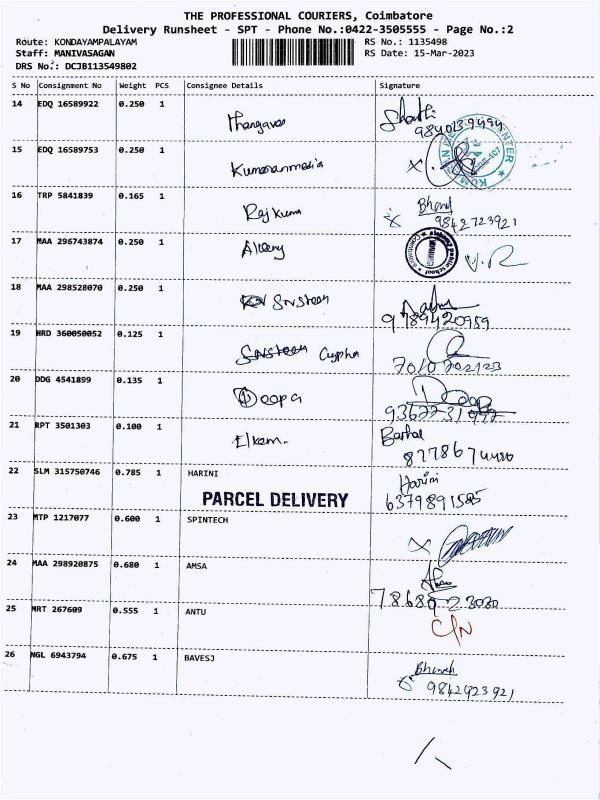 THE PROFESSIONAL COURIERS, Coimbatore
Delivery Runsheet - SPT - Phone No.:0422-3505555 - Page No.:2
Route: KONDAYAMPALAYAM RS No.: 1135498
Staff: MANIVASAGAN RS Date: 15-Mar-2023
DRS No.: DCJB113549802
S No Consignment No Weight PCS Consignee Details Signature
14 EDQ 16589922 0.250 1
15 EDQ 16589753 0.250 1 Kumaranmedia
16 TRP 5841839 0.165 1 Raj Kumar 9842723921
17 MAA 296743874 0.250 1
18 MAA 298528070 0.250 1 9789420959
19 HRD 360050052 0.125 1 Cypha
20 DDG 4541899 0.135 1 Doopa
21 RPT 3501303 0.100 1 Elkem.
22 SLM 315750746 0.785 1 HARINI Harini
PARCEL DELIVERY 6379891585
23 MTP 1217077 0.600 1 SPINTECH
24 MAA 298920875 0.680 1 AMSA
25 MRT 267609 0.555 1 ANTU C/N
26 NGL 6943794 0.675 1 BAVESJ